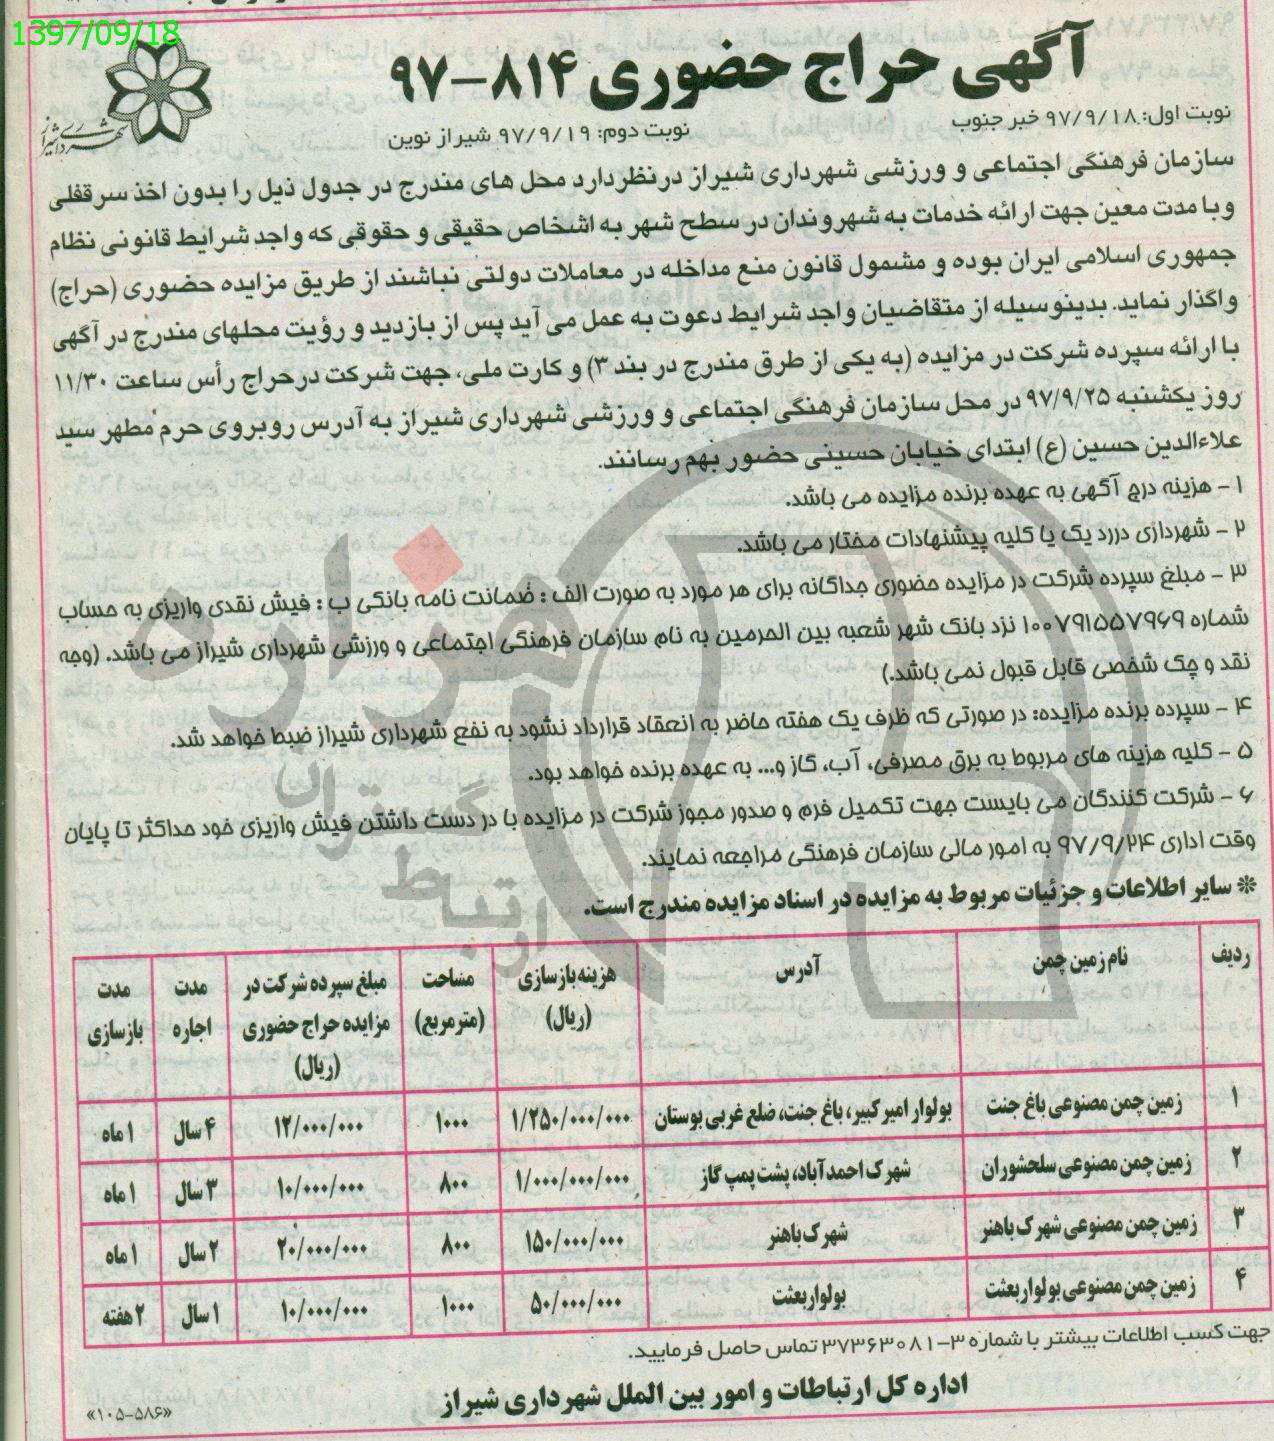 1397/09/18
شهرداری شیراز
آگهی حراج حضوری ۸۱۴-۹۷
نوبت اول: ۹۷/۹/۱۸ خبر جنوب
نوبت دوم: ۹۷/۹/۱۹ شیراز نوین
سازمان فرهنگی اجتماعی و ورزشی شهرداری شیراز درنظردارد محل های مندرج در جدول ذیل را بدون اخذ سرقفلی
وبا مدت معین جهت ارائه خدمات به شهروندان در سطح شهر به اشخاص حقیقی و حقوقی که واجد شرایط قانونی نظام
جمهوری اسلامی ایران بوده و مشمول قانون منع مداخله در معاملات دولتی نباشند از طریق مزایده حضوری (حراج)
واگذار نماید. بدینوسیله از متقاضیان واجد شرایط دعوت به عمل می آید پس از بازدید و رؤیت محلهای مندرج در آگهی
با ارائه سپرده شرکت در مزایده (به یکی از طرق مندرج در بند ۳) و کارت ملی، جهت شرکت درحراج رأس ساعت ۱۱/۳۰
روز یکشنبه ۹۷/۹/۲۵ در محل سازمان فرهنگی اجتماعی و ورزشی شهرداری شیراز به آدرس روبروی حرم مطهر سید
علاءالدین حسین (ع) ابتدای خیابان حسینی حضور بهم رسانند.
۱ - هزینه درج آگهی به عهده برنده مزایده می باشد.
۲ - شهرداری دررد یک یا کلیه پیشنهادات مختار می باشد.
۳ - مبلغ سپرده شرکت در مزایده حضوری جداگانه برای هر مورد به صورت الف : ضمانت نامه بانکی ب : فیش نقدی واریزی به حساب
شماره ۱۰۰۷۹۱۵۵۷۹۶۹ نزد بانک شهر شعبه بین الحرمین به نام سازمان فرهنگی اجتماعی و ورزشی شهرداری شیراز می باشد. (وجه
نقد و چک شخصی قابل قبول نمی باشد.)
۴ - سپرده برنده مزایده: در صورتی که ظرف یک هفته حاضر به انعقاد قرارداد نشود به نفع شهرداری شیراز ضبط خواهد شد.
۵ - کلیه هزینه های مربوط به برق مصرفی، آب، گاز و... به عهده برنده خواهد بود.
۶ - شرکت کنندگان می بایست جهت تکمیل فرم و صدور مجوز شرکت در مزایده با در دست داشتن فیش واریزی خود حداکثر تا پایان
وقت اداری ۹۷/۹/۲۴ به امور مالی سازمان فرهنگی مراجعه نمایند.
❊ سایر اطلاعات و جزئیات مربوط به مزایده در اسناد مزایده مندرج است.
هزاره
ارتباط گستران
ردیف نام زمین چمن آدرس هزینه بازسازی (ریال) مساحت (مترمربع) مبلغ سپرده شرکت در مزایده حراج حضوری (ریال) مدت اجاره مدت بازسازی
۱ زمین چمن مصنوعی باغ جنت بولوار امیرکبیر، باغ جنت، ضلع غربی بوستان ۱/۲۵۰/۰۰۰/۰۰۰ ۱۰۰۰ ۱۲/۰۰۰/۰۰۰ ۴ سال ۱ ماه
۲ زمین چمن مصنوعی سلحشوران شهرک احمدآباد، پشت پمپ گاز ۱/۰۰۰/۰۰۰/۰۰۰ ۸۰۰ ۱۰/۰۰۰/۰۰۰ ۳ سال ۱ ماه
۳ زمین چمن مصنوعی شهرک باهنر شهرک باهنر ۱۵۰/۰۰۰/۰۰۰ ۸۰۰ ۲۰/۰۰۰/۰۰۰ ۲ سال ۱ ماه
۴ زمین چمن مصنوعی بولوار بعثت بولوار بعثت ۵۰/۰۰۰/۰۰۰ ۱۰۰۰ ۱۰/۰۰۰/۰۰۰ ۱ سال ۲ هفته
جهت کسب اطلاعات بیشتر با شماره ۳-۳۷۳۶۳۰۸۱ تماس حاصل فرمایید.
اداره کل ارتباطات و امور بین الملل شهرداری شیراز
«۱۰۵-۵۸۶»